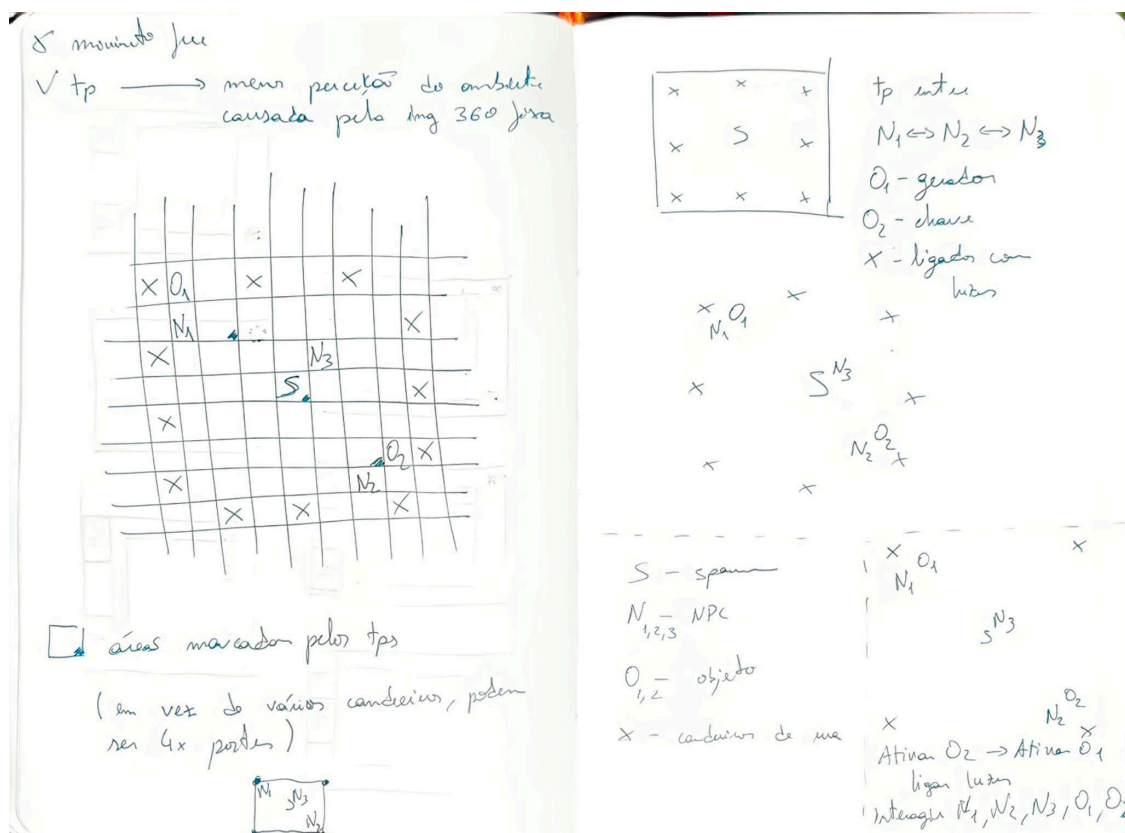 movimento free
✓ tp → menor perceção do ambiente
causada pela img 360 fixa
X O1 X X
N1 X
X N3
S X
X
O2 X
X N2
X X X
áreas marcadas pelos tps
(em vez de vários candeeiros, podem
ser 4x postes)
N1 S N3
N2
X X X
X S X
X X X
tp entre
N1 ⇔ N2 ⇔ N3
O1 - gerador
O2 - chave
X - ligados com
luzes
X X
N1 O1 X
X S N3 X
N2 O2 X
X X
S - spawn
N1,2,3 - NPC
O1,2 - objeto
X - candeeiros de rua
X O1 X
N1
S N3
X N2 O2 X
Ativar O2 → Ativar O1
ligar luzes
Interagir N1, N2, N3, O1, O2